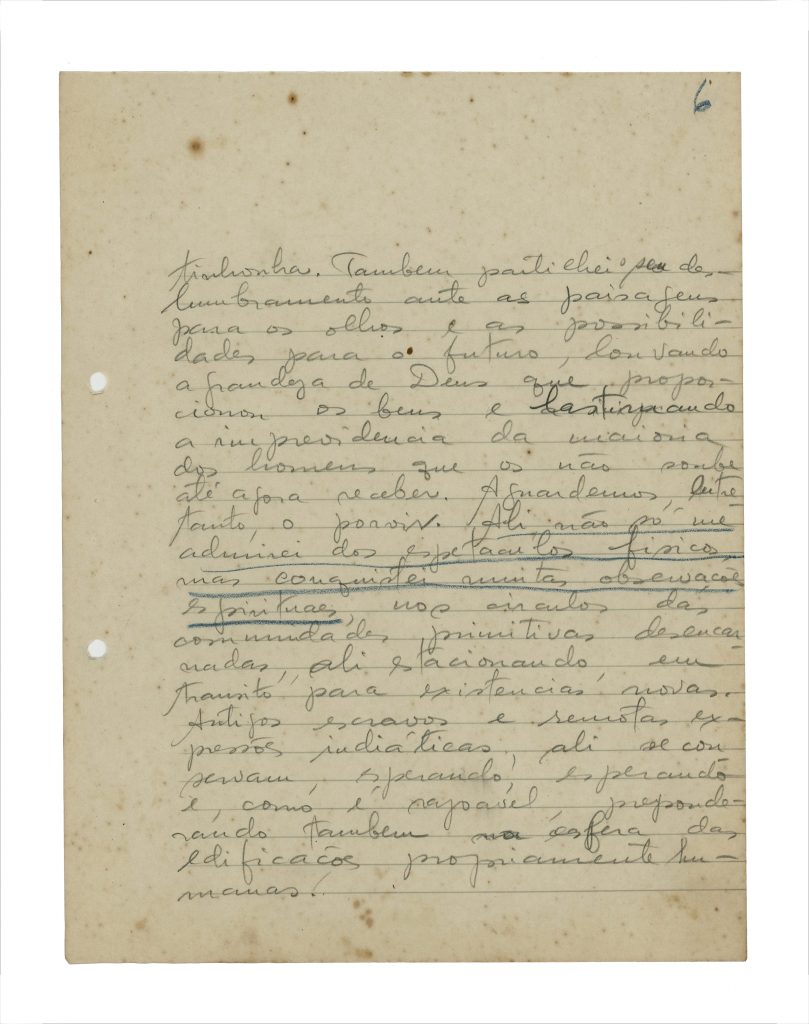 6
tinhonha. Tambem partilhei o seu des-
lumbramento ante as paisagens
para os olhos e as possibili-
dades para o futuro, louvando
a grandeza de Deus que propor-
cionou os bens e lastimando
a imprevidencia da maioria
dos homens que os não soube
até agora receber. Aguardemos, entre
tanto, o porvir. Ali, não só me
admirei dos espetaculos fisicos,
mas conquistei muitas observações
espirituaes, nos circulos das
comunidades primitivas desencar-
nadas, ali estacionando, em
transito para existencias novas.
Antigos escravos e remotas ex-
pressões indiáticas, ali se con
servam, esperando, esperando
e, como é razoável, preponde-
rando tambem na esfera das
edificacões propriamente hu-
manas.